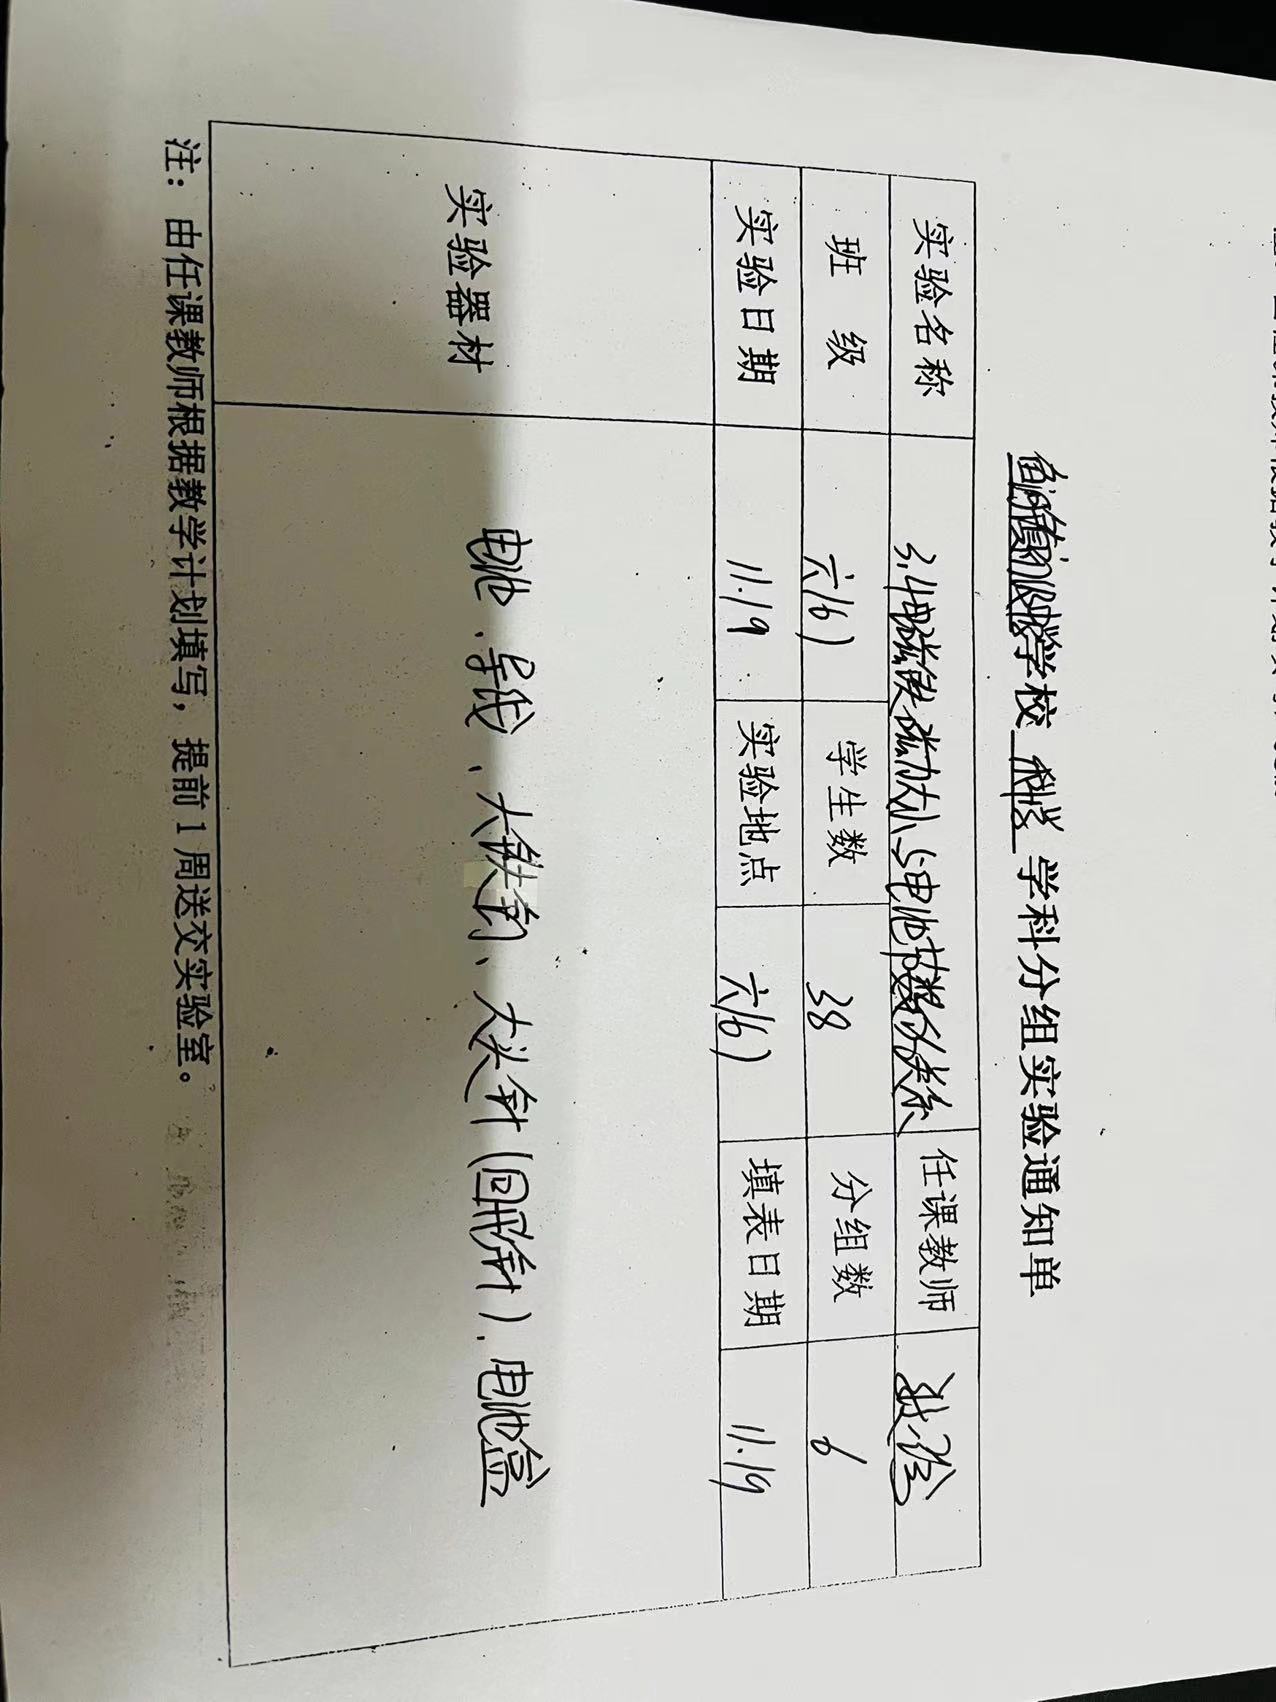 学校 科学 学科分组实验通知单
实验名称 3.4电磁铁磁力大小与电池节数的关系 任课教师
班 级 六(6) 学生数 38 分组数 6
实验日期 11.19 实验地点 六(6) 填表日期 11.19
实验器材 电池、导线、大铁钉、大头针(回形针)、电池盒
注：由任课教师根据教学计划填写，提前1周送交实验室。